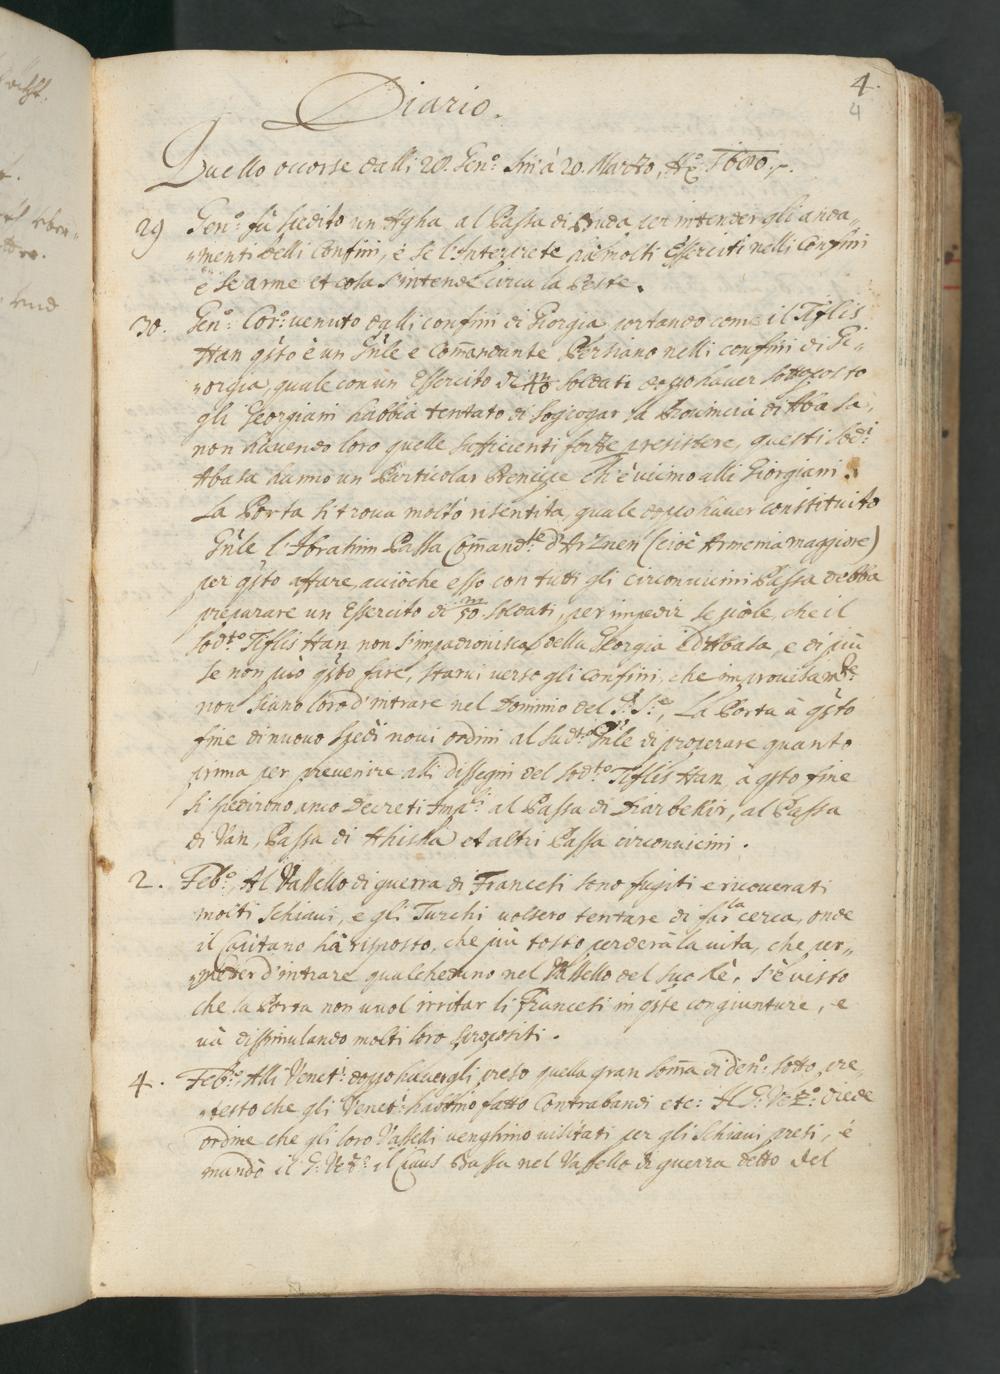 4.
4
Diario.
Quello occorse dalli 28. Genᵒ: sin' à 20. Marzo, Aᵒ 1680.
29 Genᵒ: fù spedito un Agha al Bassa di Buda per intender gli anda„
„menti delli Confini, è se l'Interprete hà molti Esserciti nelli Confini
è se arme et cosa s'intende circa la Peste.
30. Genᵒ: Corᵒ: venuto dalli confini di Giorgia portando come il Tiflis
Han qsto è un Gnle e Comandante Persiano nelli confini di Gi„
„orgia, quale con un Essercito di m/40 soldati doppo haver sottoposto
gli Georgiani habbia tentato di sogiogar la Provincia di Abasa,
non havendo loro quelle sufficienti forze presistere, questi sodⁱ
Abasa hanno un Particolar Prencipe ch'è vicino alli Giorgiani.
La Porta si trova molto risentita, quale doppo haver constituito
Gnle l'Ibrahim Bassa Comandᵗᵉ d'Arznen (cioè Armenia maggiore)
per qsto affare, acciòche esso con tutti gli circonvicini Bassa debba
preparare un Essercito di m/50 soldati, per impedir se pole, che il
sodᵗᵒ Tiflis Han non s'impadronisca della Georgia e d'Abasa, e di più
se non può qsto fare, starvi verso gli confini, che improvisamᵗᵉ
non siano loro d'intrare nel Dominio del Gʳ: Sʳᵉ, La Porta à qsto
fine di nuovo spedì novi ordini al sudᵗᵒ Gnle di properare quanto
prima per prevenire alli dissegni del sodᵗᵒ Tiflis Han à qsto fine
si spedirono anco Decreti Impˡⁱ al Bassa di Diarbekir, al Bassa
di Van, Bassa di Ahiska et altri Bassa circonvicini.
2. Febᵒ, Al Vassello di guerra di Francesi sono fugiti e ricoverati
molti schiavi, e gli Turchi volsero tentare di far la cerca, onde
il Capitano hà risposto, che più tosto perderà la vita, che per„
„metter d'intrare qualcheduno nel Vassello del suo Rè, s'è visto
che la Porta non vuol irritar li Francesi in qste congiunture, e
và dissimulando molti loro spropositi.
4. Febᵒ: Alli Venetⁱ: doppo havergli preso quella gran soma di denᵒ: sotto pre„
„testo che gli Venetⁱ: habbino fatto Contrabandi etc: Il G: Vezʳ: diede
ordine che gli loro Vasselli venghino visitati per gli schiavi presi, é
mandò il G: Vezʳ: il Ciaus Bassa nel Vassello di guerra detto del